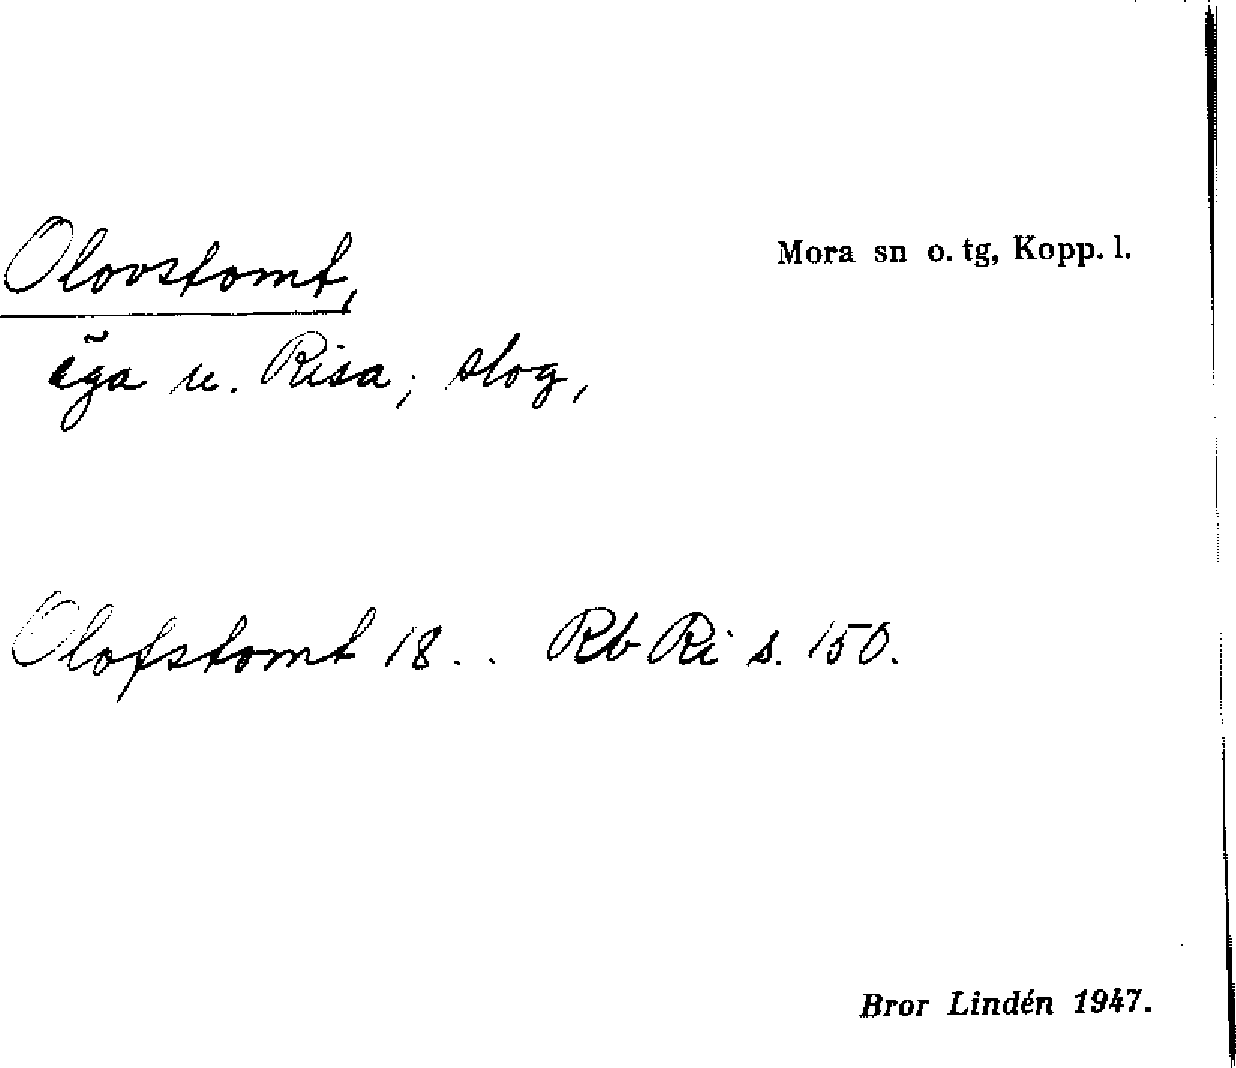 Olovstomt,
Mora sn o. tg, Kopp. l.
äga u. Risa; slog,
Olofstomt 18 . . Rb Ri s. 150.
Bror Lindén 1947.